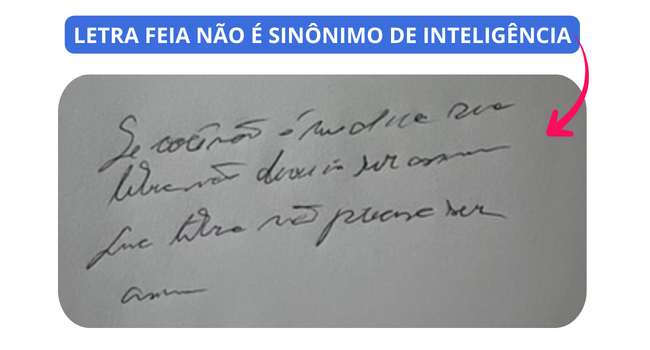 LETRA FEIA NÃO É SINÔNIMO DE INTELIGÊNCIA
Se você não é médico sua
letra não deveria ser assim
Sua letra não precisa ser
assim